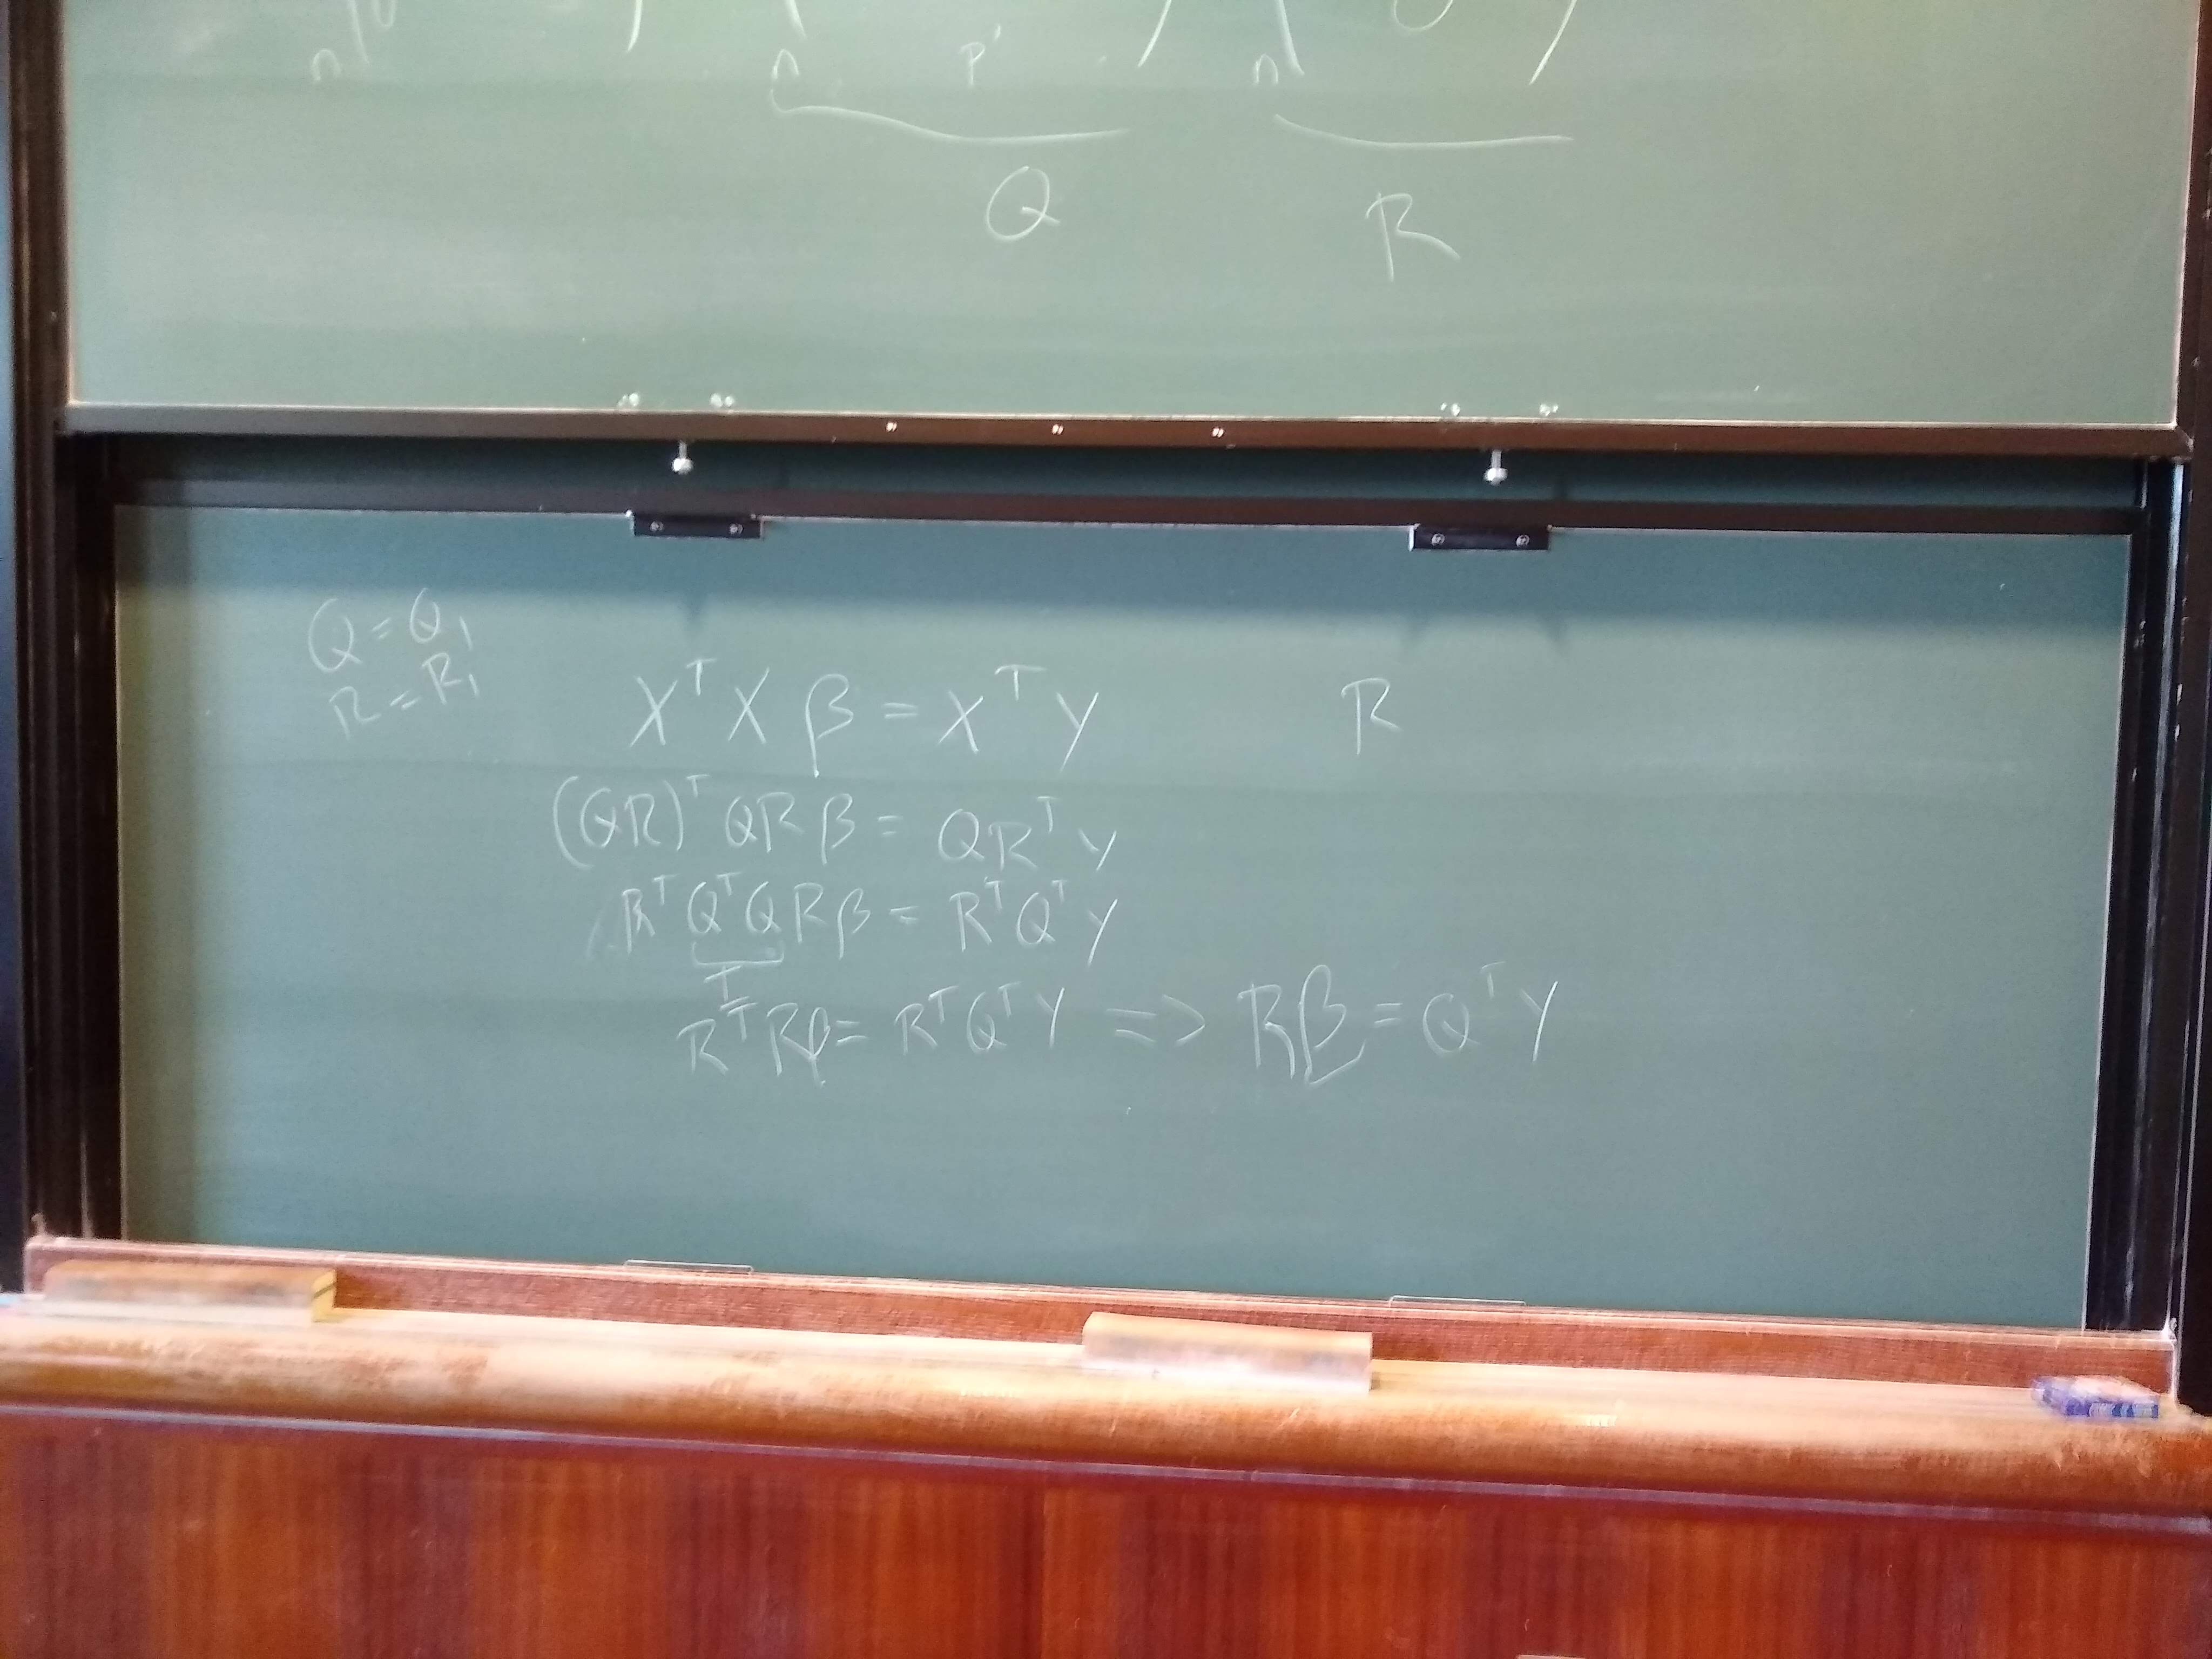 n n p' n
Q R
Q = Q₁
R = R₁
XᵀX β = XᵀY R
(QR)ᵀ QR β = QRᵀ Y
RᵀQᵀQRβ = RᵀQᵀY
I
RᵀRβ = RᵀQᵀY => Rβ = QᵀY